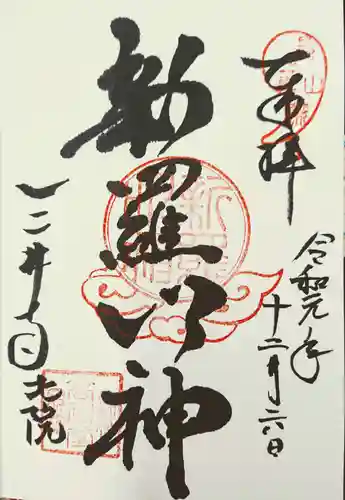 奉拝
令和元年
十二月六日
新羅明神
三井寺
本院